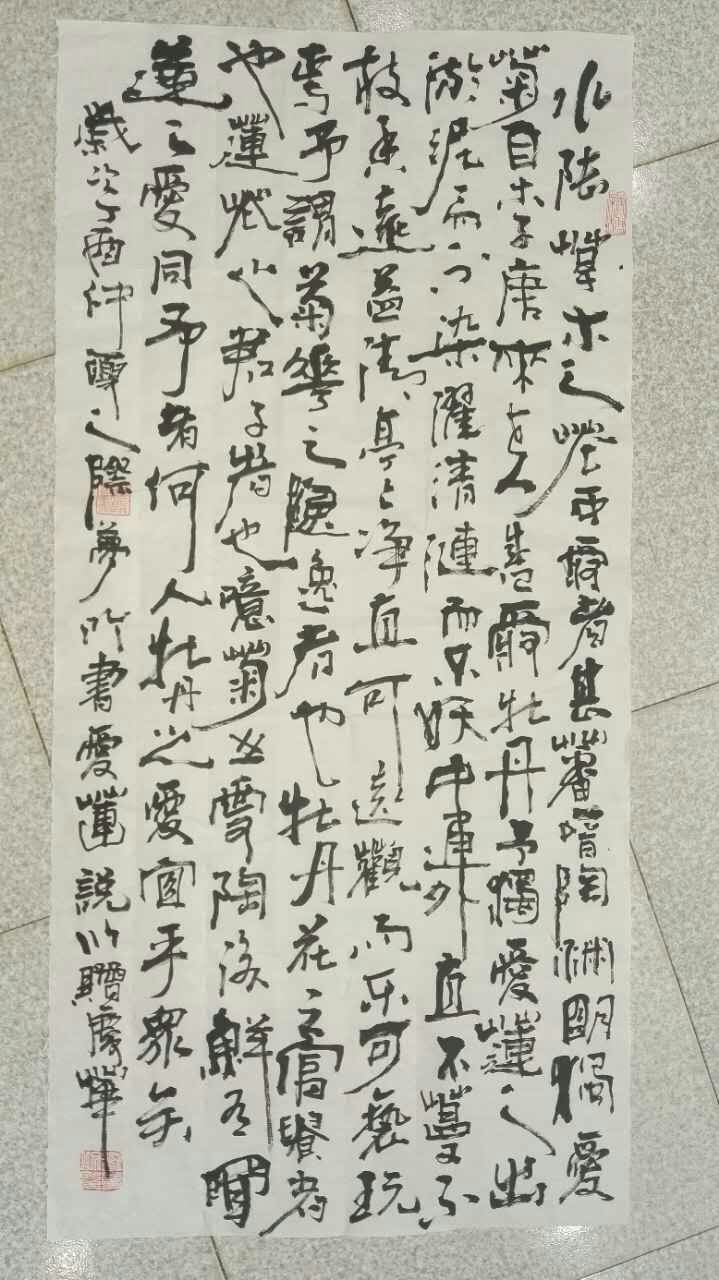 水陸草木之花可愛者甚蕃晋陶淵明獨愛
菊自李唐來世人甚愛牡丹予獨愛蓮之出
淤泥而不染濯清漣而不妖中通外直不蔓不
枝香遠益清亭亭净直可遠觀而不可褻玩
焉予謂菊華之隱逸者也牡丹花之富貴者
也蓮花之君子者也噫菊之愛陶後鮮有聞
蓮之愛同予者何人牡丹之愛宜乎衆矣
歲次丁酉仲夏之際夢吟書愛蓮説以贈